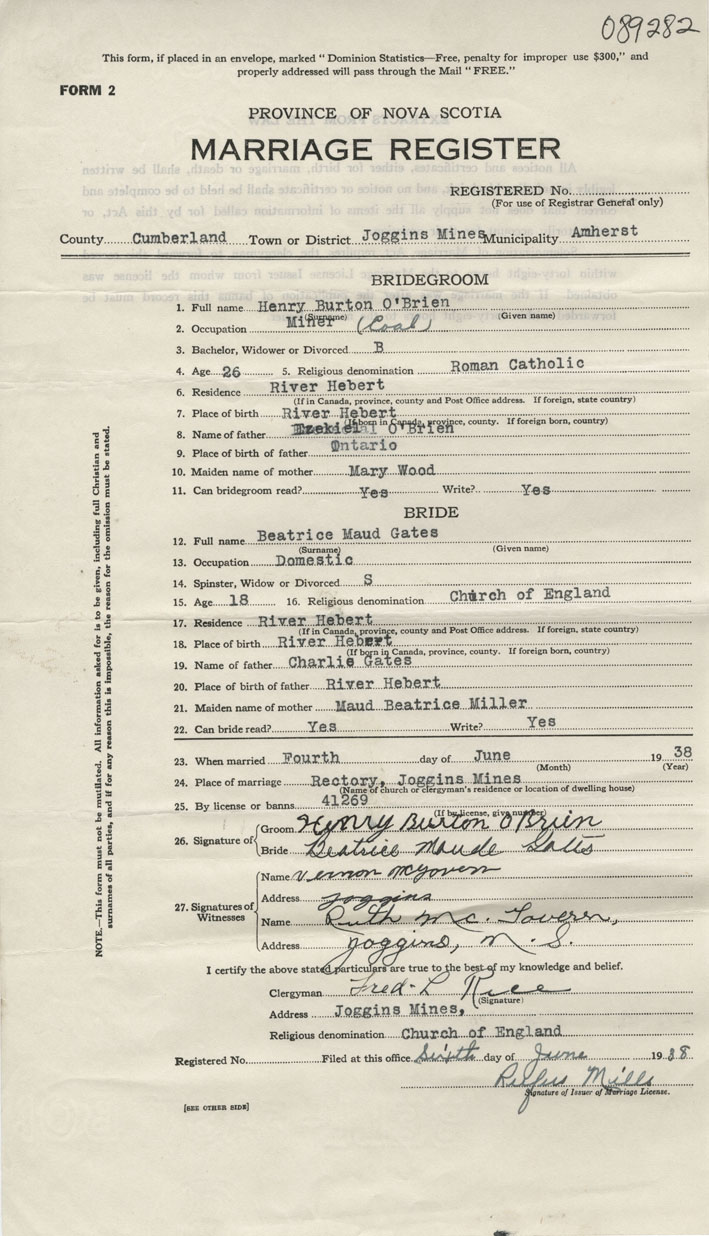 089282
This form, if placed in an envelope, marked "Dominion Statistics—Free, penalty for improper use $300," and
properly addressed will pass through the Mail "FREE."
FORM 2
PROVINCE OF NOVA SCOTIA
MARRIAGE REGISTER
REGISTERED No.
(For use of Registrar General only)
County Cumberland Town or District Joggins Mines Municipality Amherst
BRIDEGROOM
1. Full name Henry Burton O'Brien
(Surname) (Given name)
2. Occupation Miner (Coal)
3. Bachelor, Widower or Divorced B
4. Age 26 5. Religious denomination Roman Catholic
6. Residence River Hebert
(If in Canada, province, county and Post Office address. If foreign, state country)
7. Place of birth River Hebert
(If born in Canada, province, county. If foreign born, country)
8. Name of father O'Brien
9. Place of birth of father Ontario
10. Maiden name of mother Mary Wood
11. Can bridegroom read? Yes Write? Yes
BRIDE
12. Full name Beatrice Maud Gates
(Surname) (Given name)
13. Occupation Domestic
14. Spinster, Widow or Divorced S
15. Age 18 16. Religious denomination Church of England
17. Residence River Hebert
(If in Canada, province, county and Post Office address. If foreign, state country)
18. Place of birth River Hebert
(If born in Canada, province, county. If foreign born, country)
19. Name of father Charlie Gates
20. Place of birth of father River Hebert
21. Maiden name of mother Maud Beatrice Miller
22. Can bride read? Yes Write? Yes
23. When married Fourth day of June 19 38
(Month) (Year)
24. Place of marriage Rectory, Joggins Mines
(Name of church or clergyman's residence or location of dwelling house)
25. By license or banns 41269
(If by license, give number)
26. Signature of Groom Henry Burton O'Brien
Bride Beatrice Maude Gates
27. Signatures of Witnesses
Name Vernon McGovern
Address Joggins
Name Ruth Mc. Goveren,
Address Joggins, N. S.
I certify the above stated particulars are true to the best of my knowledge and belief.
Clergyman Fred. L Rice
(Signature)
Address Joggins Mines,
Religious denomination Church of England
Registered No. Filed at this office Sixth day of June 19 38
Rufus Mills
Signature of Issuer of Marriage License.
[SEE OTHER SIDE]
NOTE.—This form must not be mutilated. All information asked for is to be given, including full Christian and
surnames of all parties, and if for any reason this is impossible, the reason for the omission must be stated.